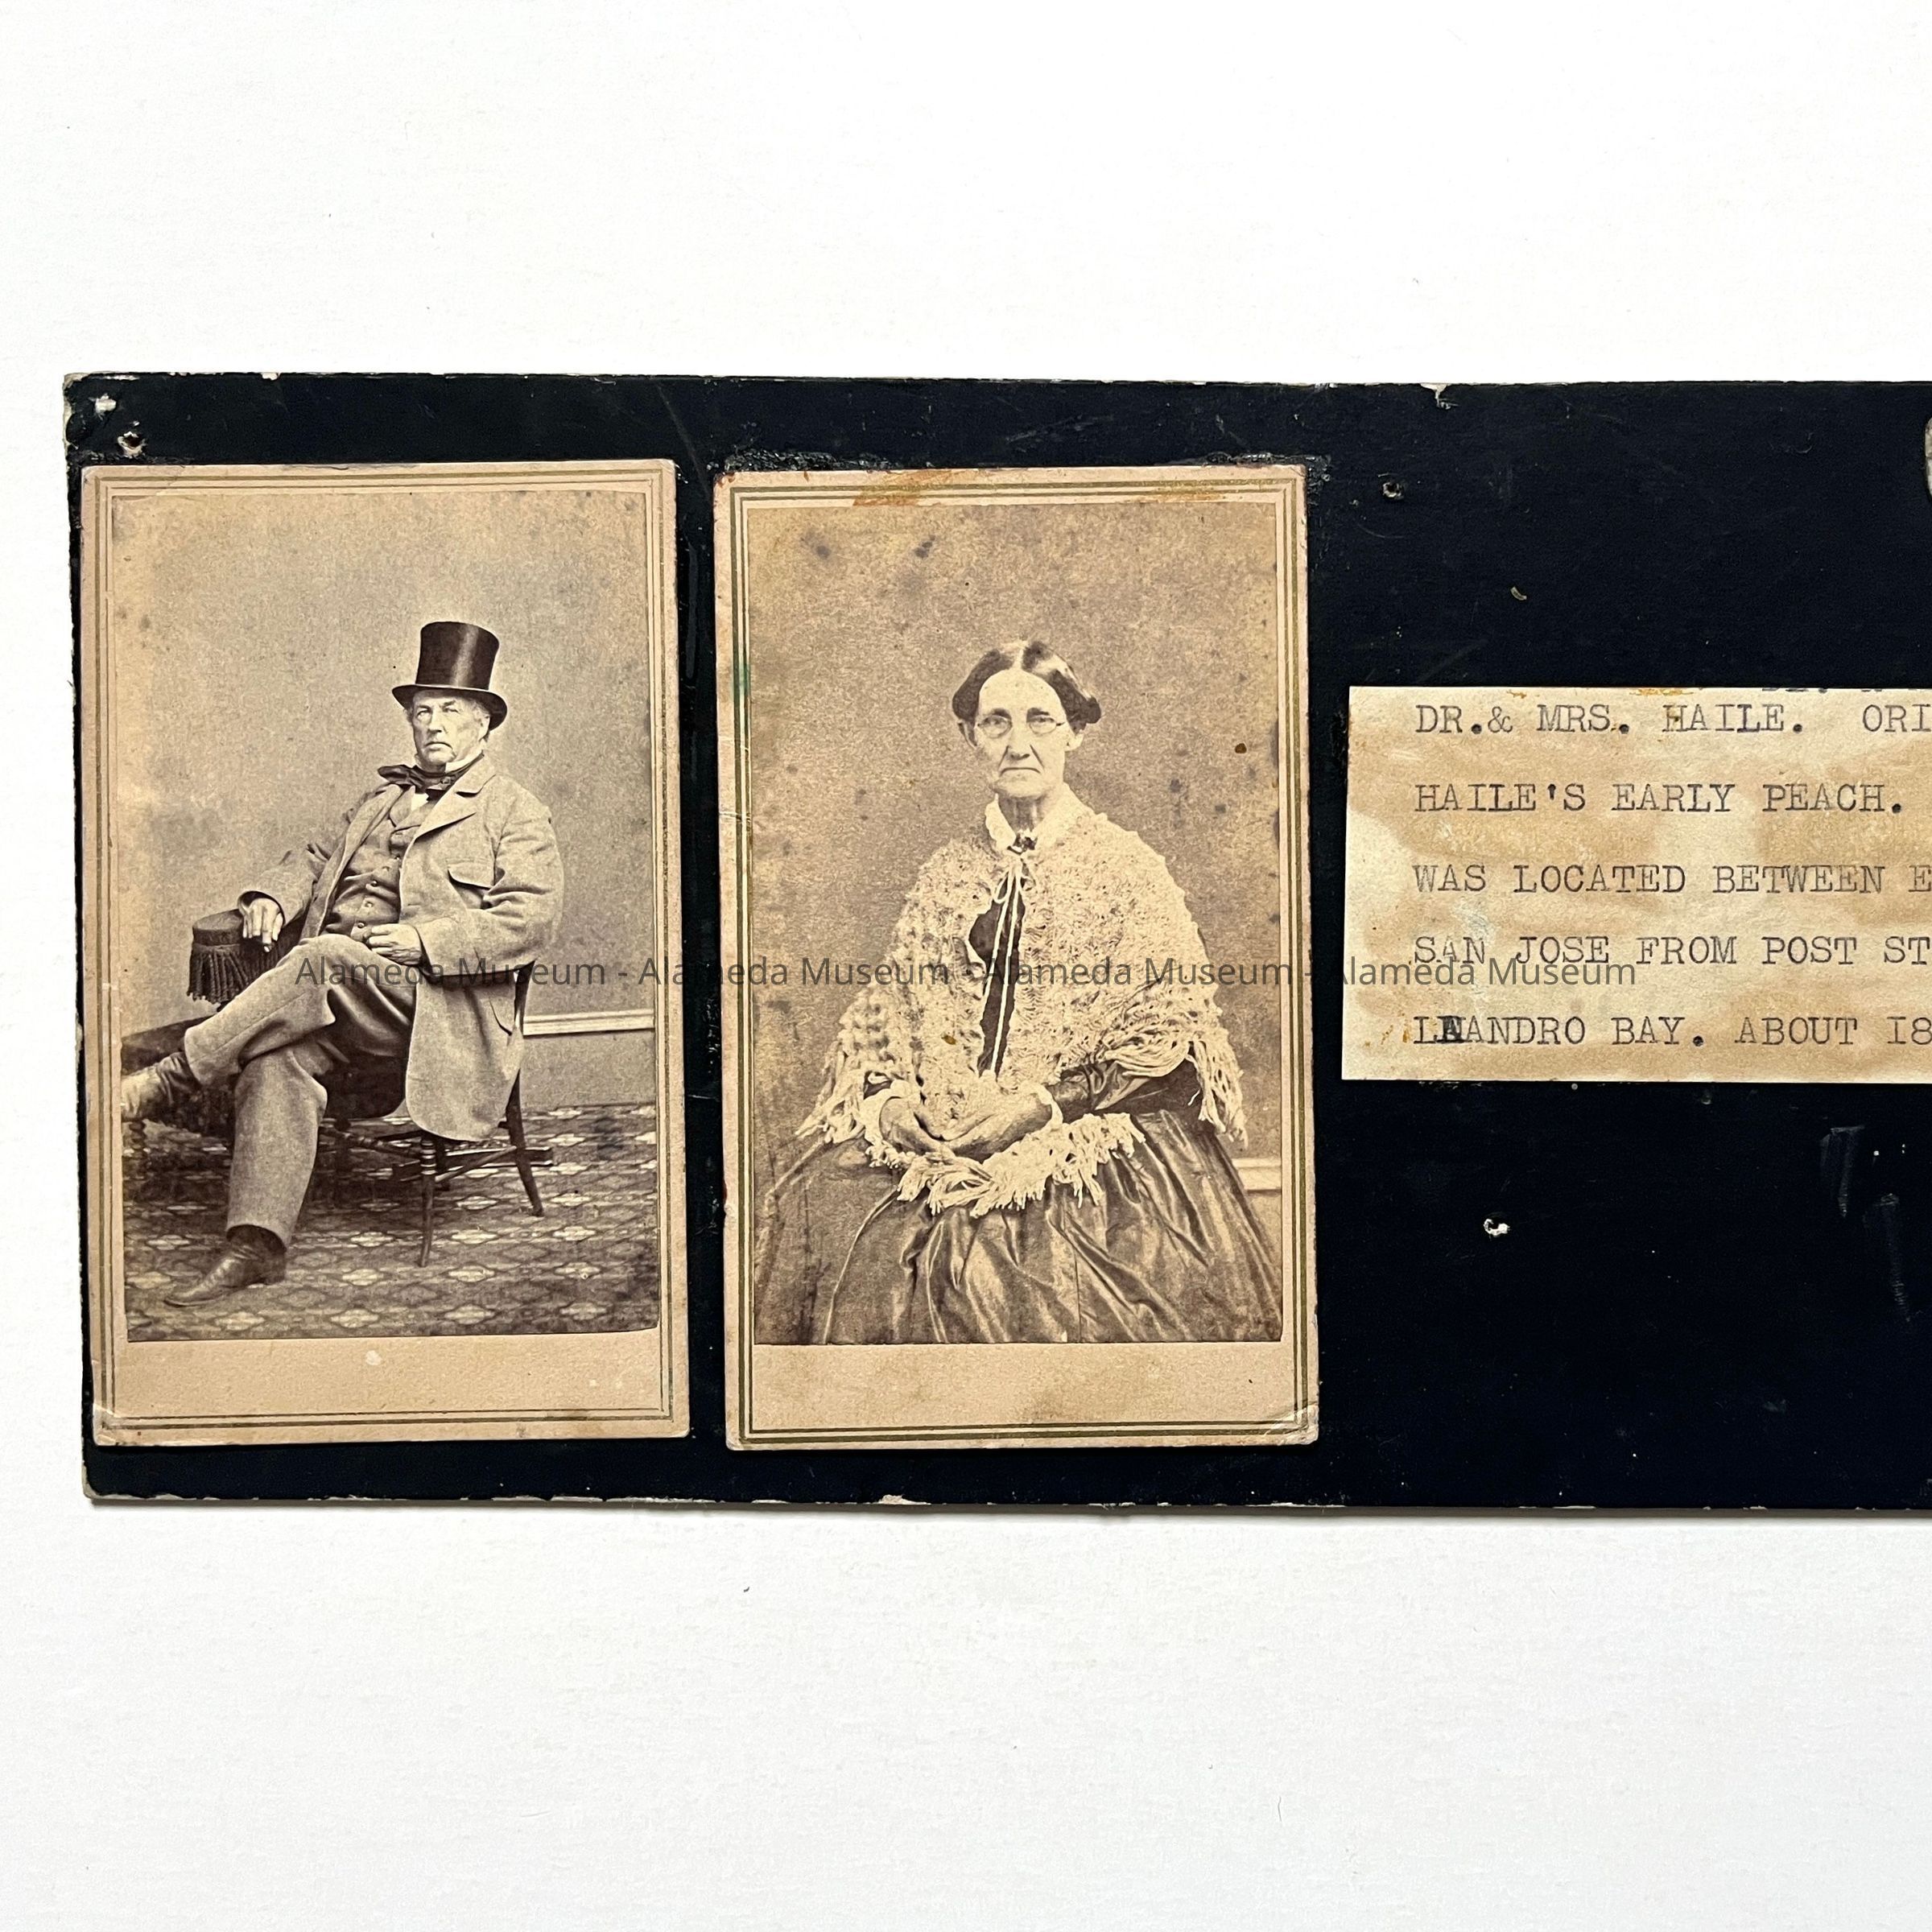 DR.& MRS. HAILE. ORI
HAILE'S EARLY PEACH.
WAS LOCATED BETWEEN E
SAN JOSE FROM POST ST
LEANDRO BAY. ABOUT 18
Alameda Museum - Alameda Museum - Alameda Museum - Alameda Museum